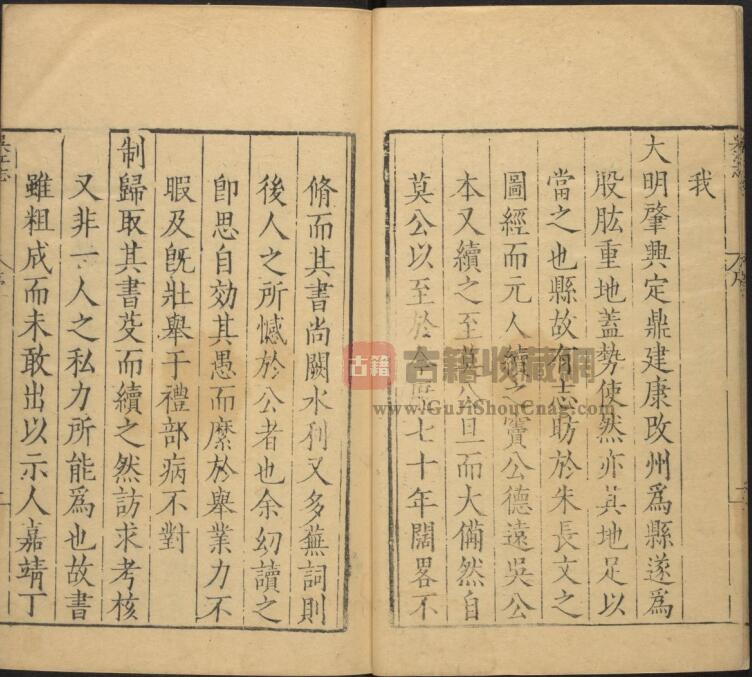 我
大明肇興定鼎建康攺州爲縣遂爲
股肱重地蓋勢使然亦其地足以
當之也縣故有志昉於朱長文之
圖經而元人續之竇公德遠吳公
本又續之至莫公旦而大備然自
莫公以至於今歷七十年闊畧不
脩而其書尚闕水利又多蕪詞則
後人之所憾於公者也余幼讀之
卽思自効其愚而縻於舉業力不
暇及旣壯舉于禮部病不對
制歸取其書芟而續之然訪求考核
又非一人之私力所能爲也故書
雖粗成而未敢出以示人嘉靖丁
古籍
古籍收藏网
www.GuJiShouCang.com